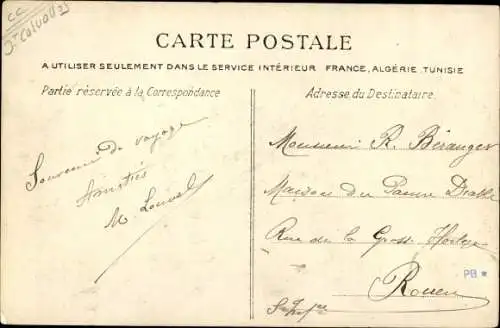 CC
Jt Calvados
CARTE POSTALE
A UTILISER SEULEMENT DANS LE SERVICE INTÉRIEUR FRANCE, ALGÉRIE, TUNISIE
Partie réservée à la Correspondance
Adresse du Destinataire.
Souvenir de voyage
Amitiés
M. Louvel
Monsieur R. Béranger
Maison du Pauvre Diable
Rue de la Grosse Horloge
Rouen
S. Infre
PB *